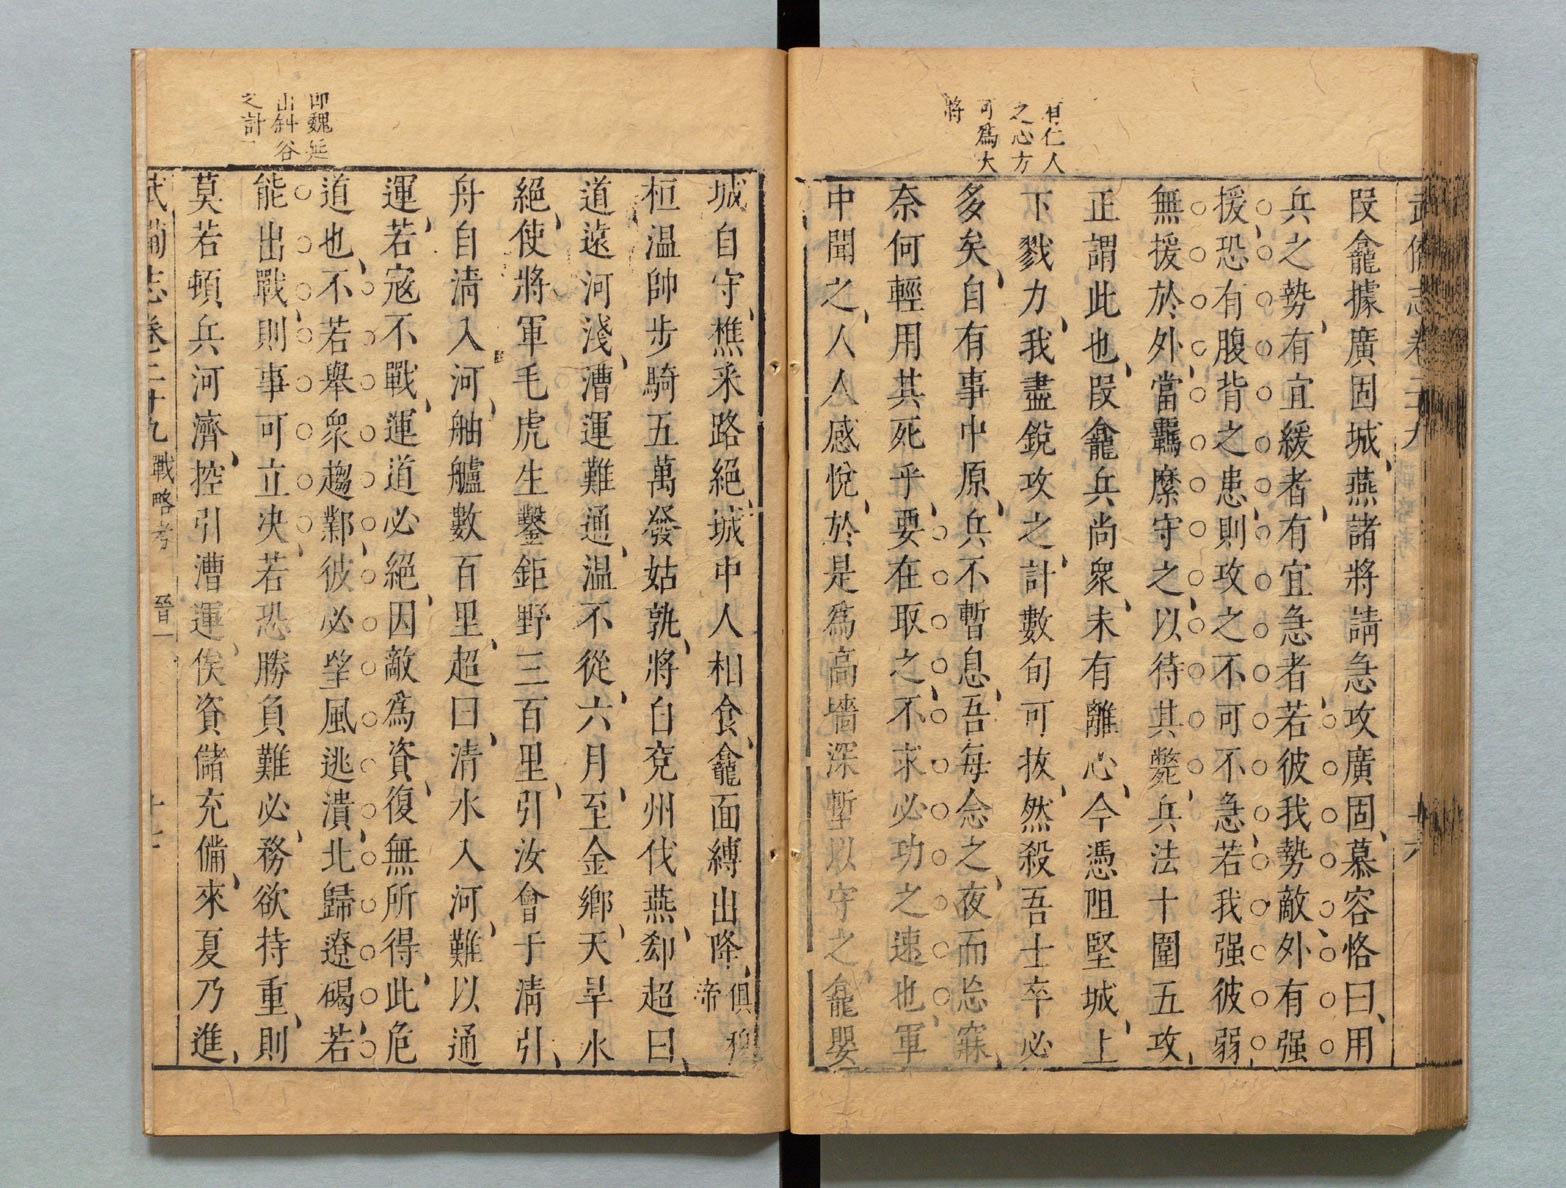 有仁人
之心方
可為大
將
武備志卷二十九
十六
段龕據廣固城燕諸將請急攻廣固慕容恪曰用
兵之勢有宜緩者有宜急者若彼我勢敵外有强
援恐有腹背之患則攻之不可不急若我强彼弱
無援於外當羈縻守之以待其斃兵法十圍五攻
正謂此也段龕兵尚衆未有離心今憑阻堅城上
下戮力我盡銳攻之計數旬可拔然殺吾士卒必
多矣自有事中原兵不暫息吾每念之夜而忘寐
奈何輕用其死乎要在取之不求必功之速也軍
中聞之人人感悅於是爲高墻深塹以守之龕嬰
城自守樵采路絕城中人相食龕面縛出降俱穆
帝
桓溫帥步騎五萬發姑孰將自兗州伐燕郄超曰
道遠河淺漕運難通溫不從六月至金鄉天旱水
絕使將軍毛虎生鑿鉅野三百里引汶會于清引
舟自清入河舳艫數百里超曰清水入河難以通
運若寇不戰運道必絕因敵為資復無所得此危
道也不若舉衆趨鄴彼必望風逃潰北歸遼碣若
能出戰則事可立决若恐勝負難必務欲持重則
莫若頓兵河濟控引漕運俟資儲充備來夏乃進
即魏延
出斜谷
之計
武備志卷二十九 戰略考 晉一
十七